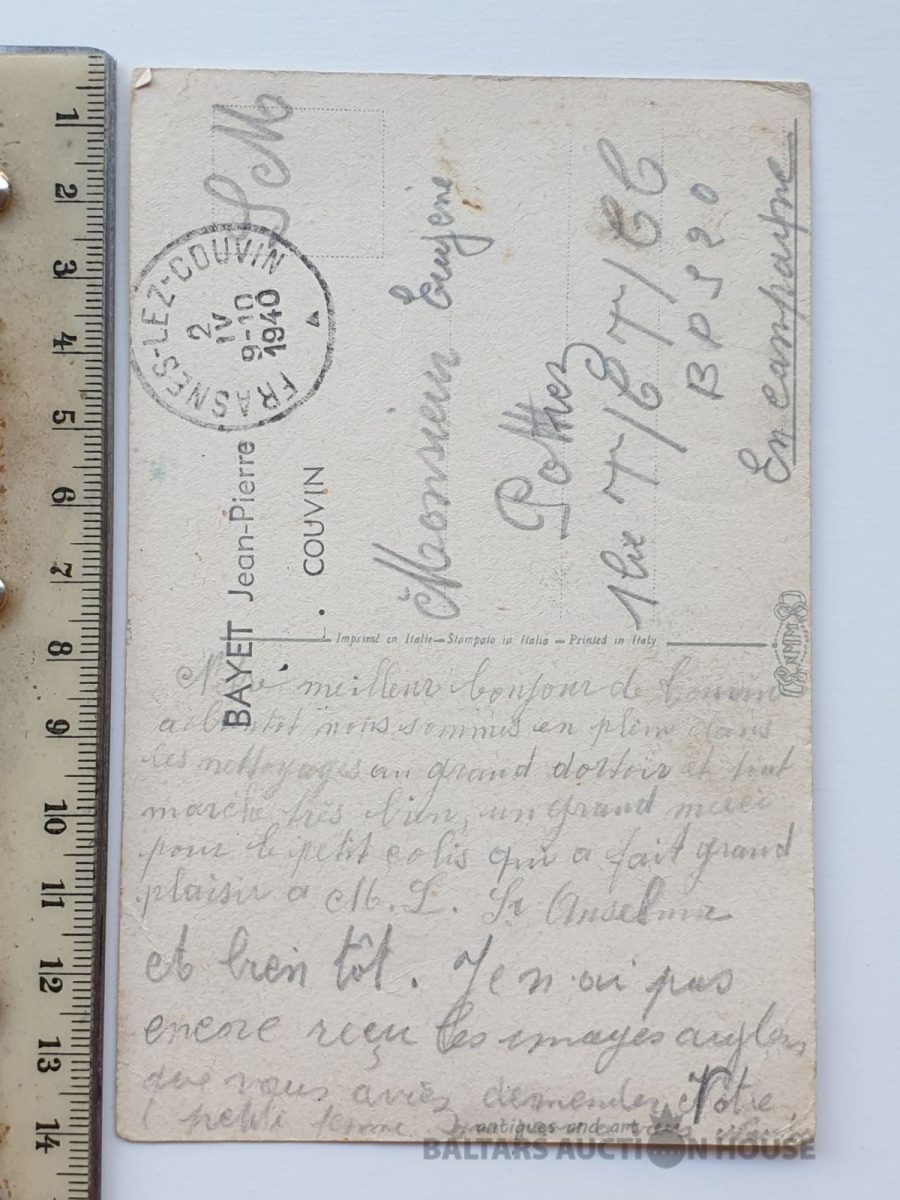 S M
FRASNES-LEZ-COUVIN
2
IV
9-10
1940
BAYET Jean-Pierre
COUVIN
Monsieur Eugène
1 Cie T/E T/CC
B P S 20
En campagne
Imprimé en Italie — Stampato in Italia — Printed in Italy
meilleur bonjour de
a bientôt nous sommes en plein dans
les nettoyages au grand dortoir et tout
marche très bien, un grand merci
pour le petit colis qui a fait grand
plaisir a M. L. Sr Anselma
et bien tôt. Je n ai pas
encore reçu les images
que vous aviez demender Votre
petite femme
antiques and art
BALTARS AUCTION HOUSE
1
2
3
4
5
6
7
8
9
10
11
12
13
14